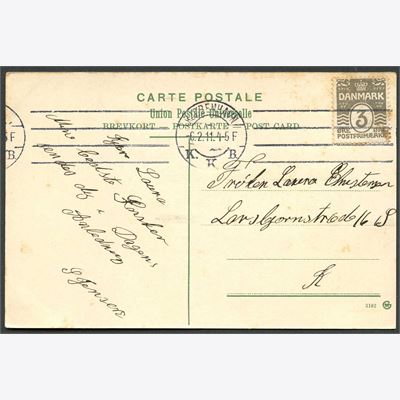 CARTE POSTALE
Union Postale Universelle
BREVKORT POSTKARTE POST CARD
KJØBENHAVN
6.2.11. 4-5 F
K. K B
5 F
B
DANMARK
3
ØRE ØRE
POSTFRIMÆRKE
Kjær Laura
Min bedste Ønsker
sendes dig i Dagens
Anledning
G Jensen
Frøken Laura Christensen
Larsbjørnstræde 16 S
K
3102